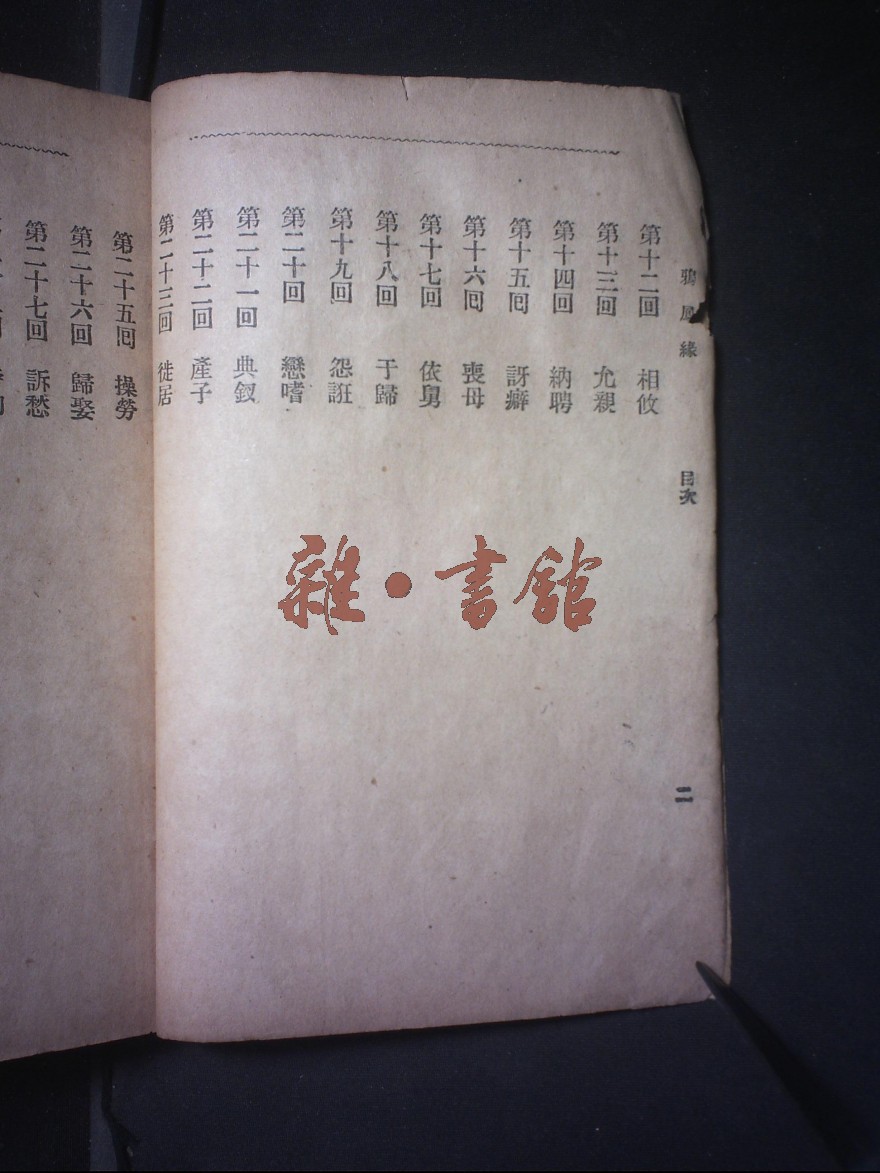 鴉鳳緣 目次 二
第十二回 相攸
第十三回 允親
第十四回 納聘
第十五回 訝癖
第十六回 喪母
第十七回 依舅
第十八回 于歸
第十九回 怨誑
第二十回 戀嗜
第二十一回 典釵
第二十二回 產子
第二十三回 徙居
第二十五回 操勞
第二十六回 歸娶
第二十七回 訴愁
雜·書館